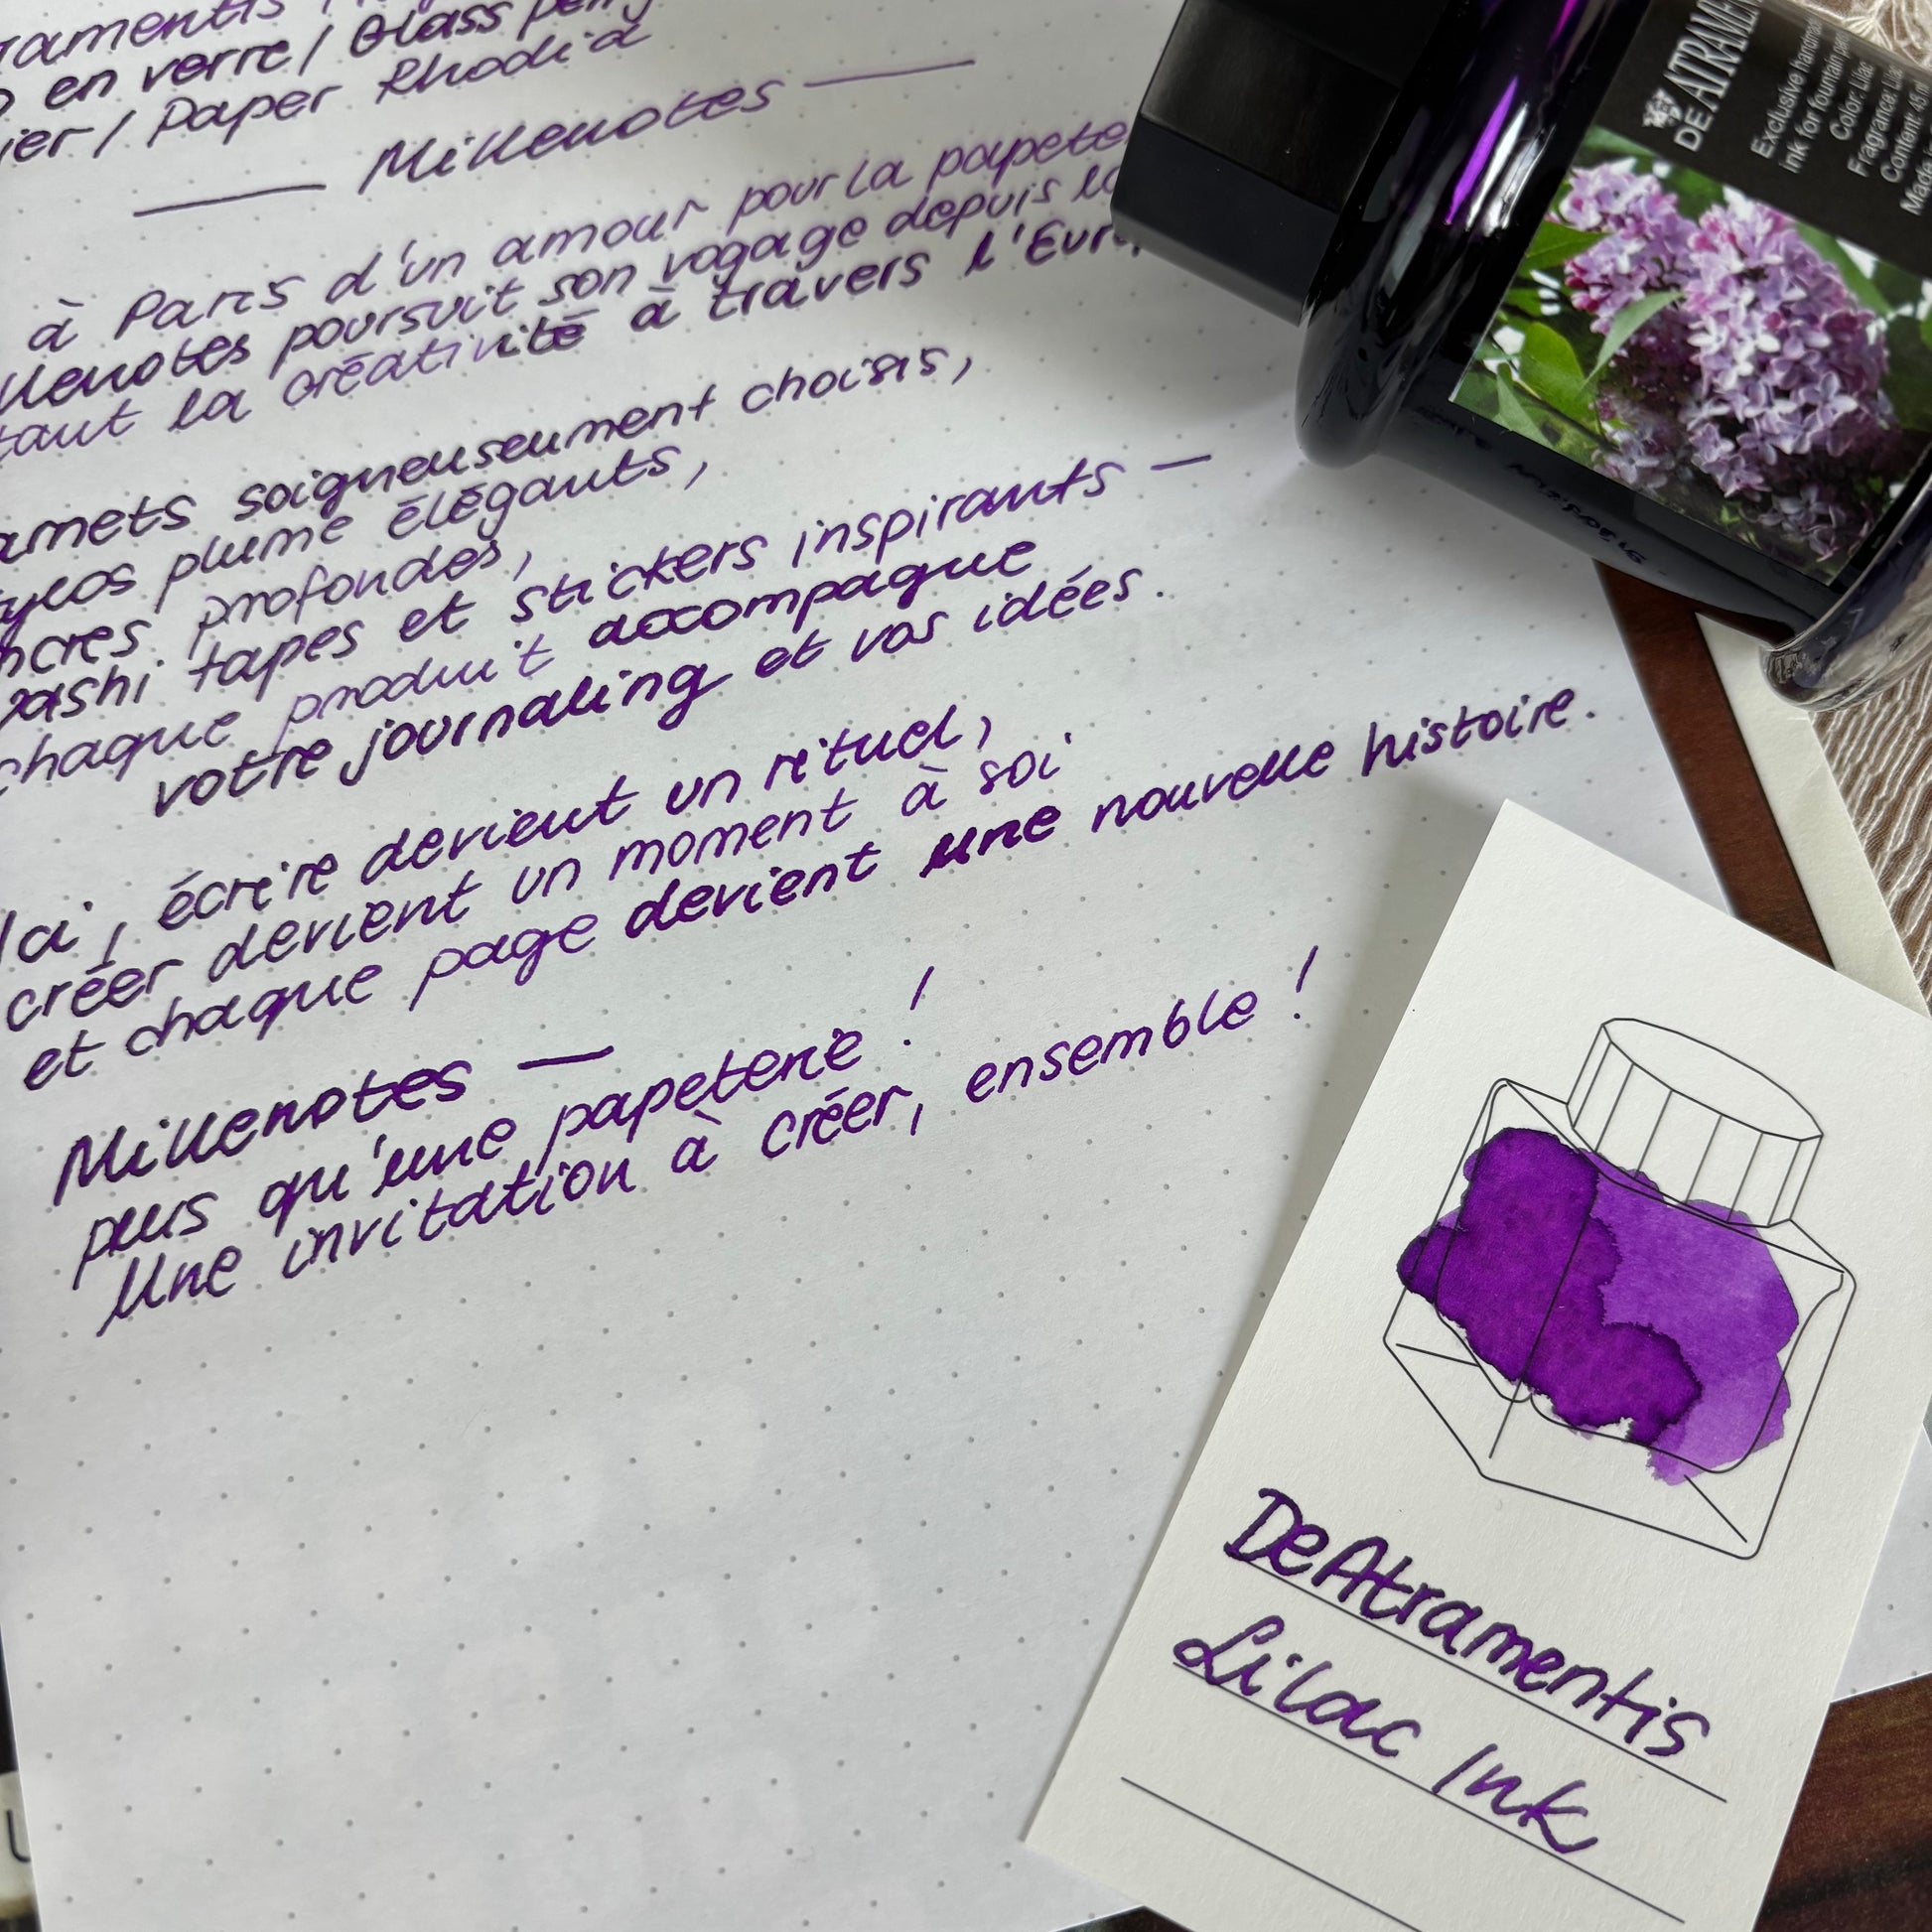 en verre / Glass pen
Paper Rhodia
Millenotes
à Paris d'un amour pour la
poursuit son voyage depuis
la créativité à travers
soigneusement choisis,
plume élégants,
profondes,
tapes et stickers inspirants —
chaque produit accompagne
votre journaling et vos idées.
Ici, écrire devient un rituel,
créer devient un moment à soi
et chaque page devient une nouvelle histoire.
Millenotes —
plus qu'une papeterie !
Une invitation à créer, ensemble !
DE ATRAMEN
Exclusive
ink for fountain
Color: Lilac
Fragrance:
Content:
DeAtramentis
Lilac Ink